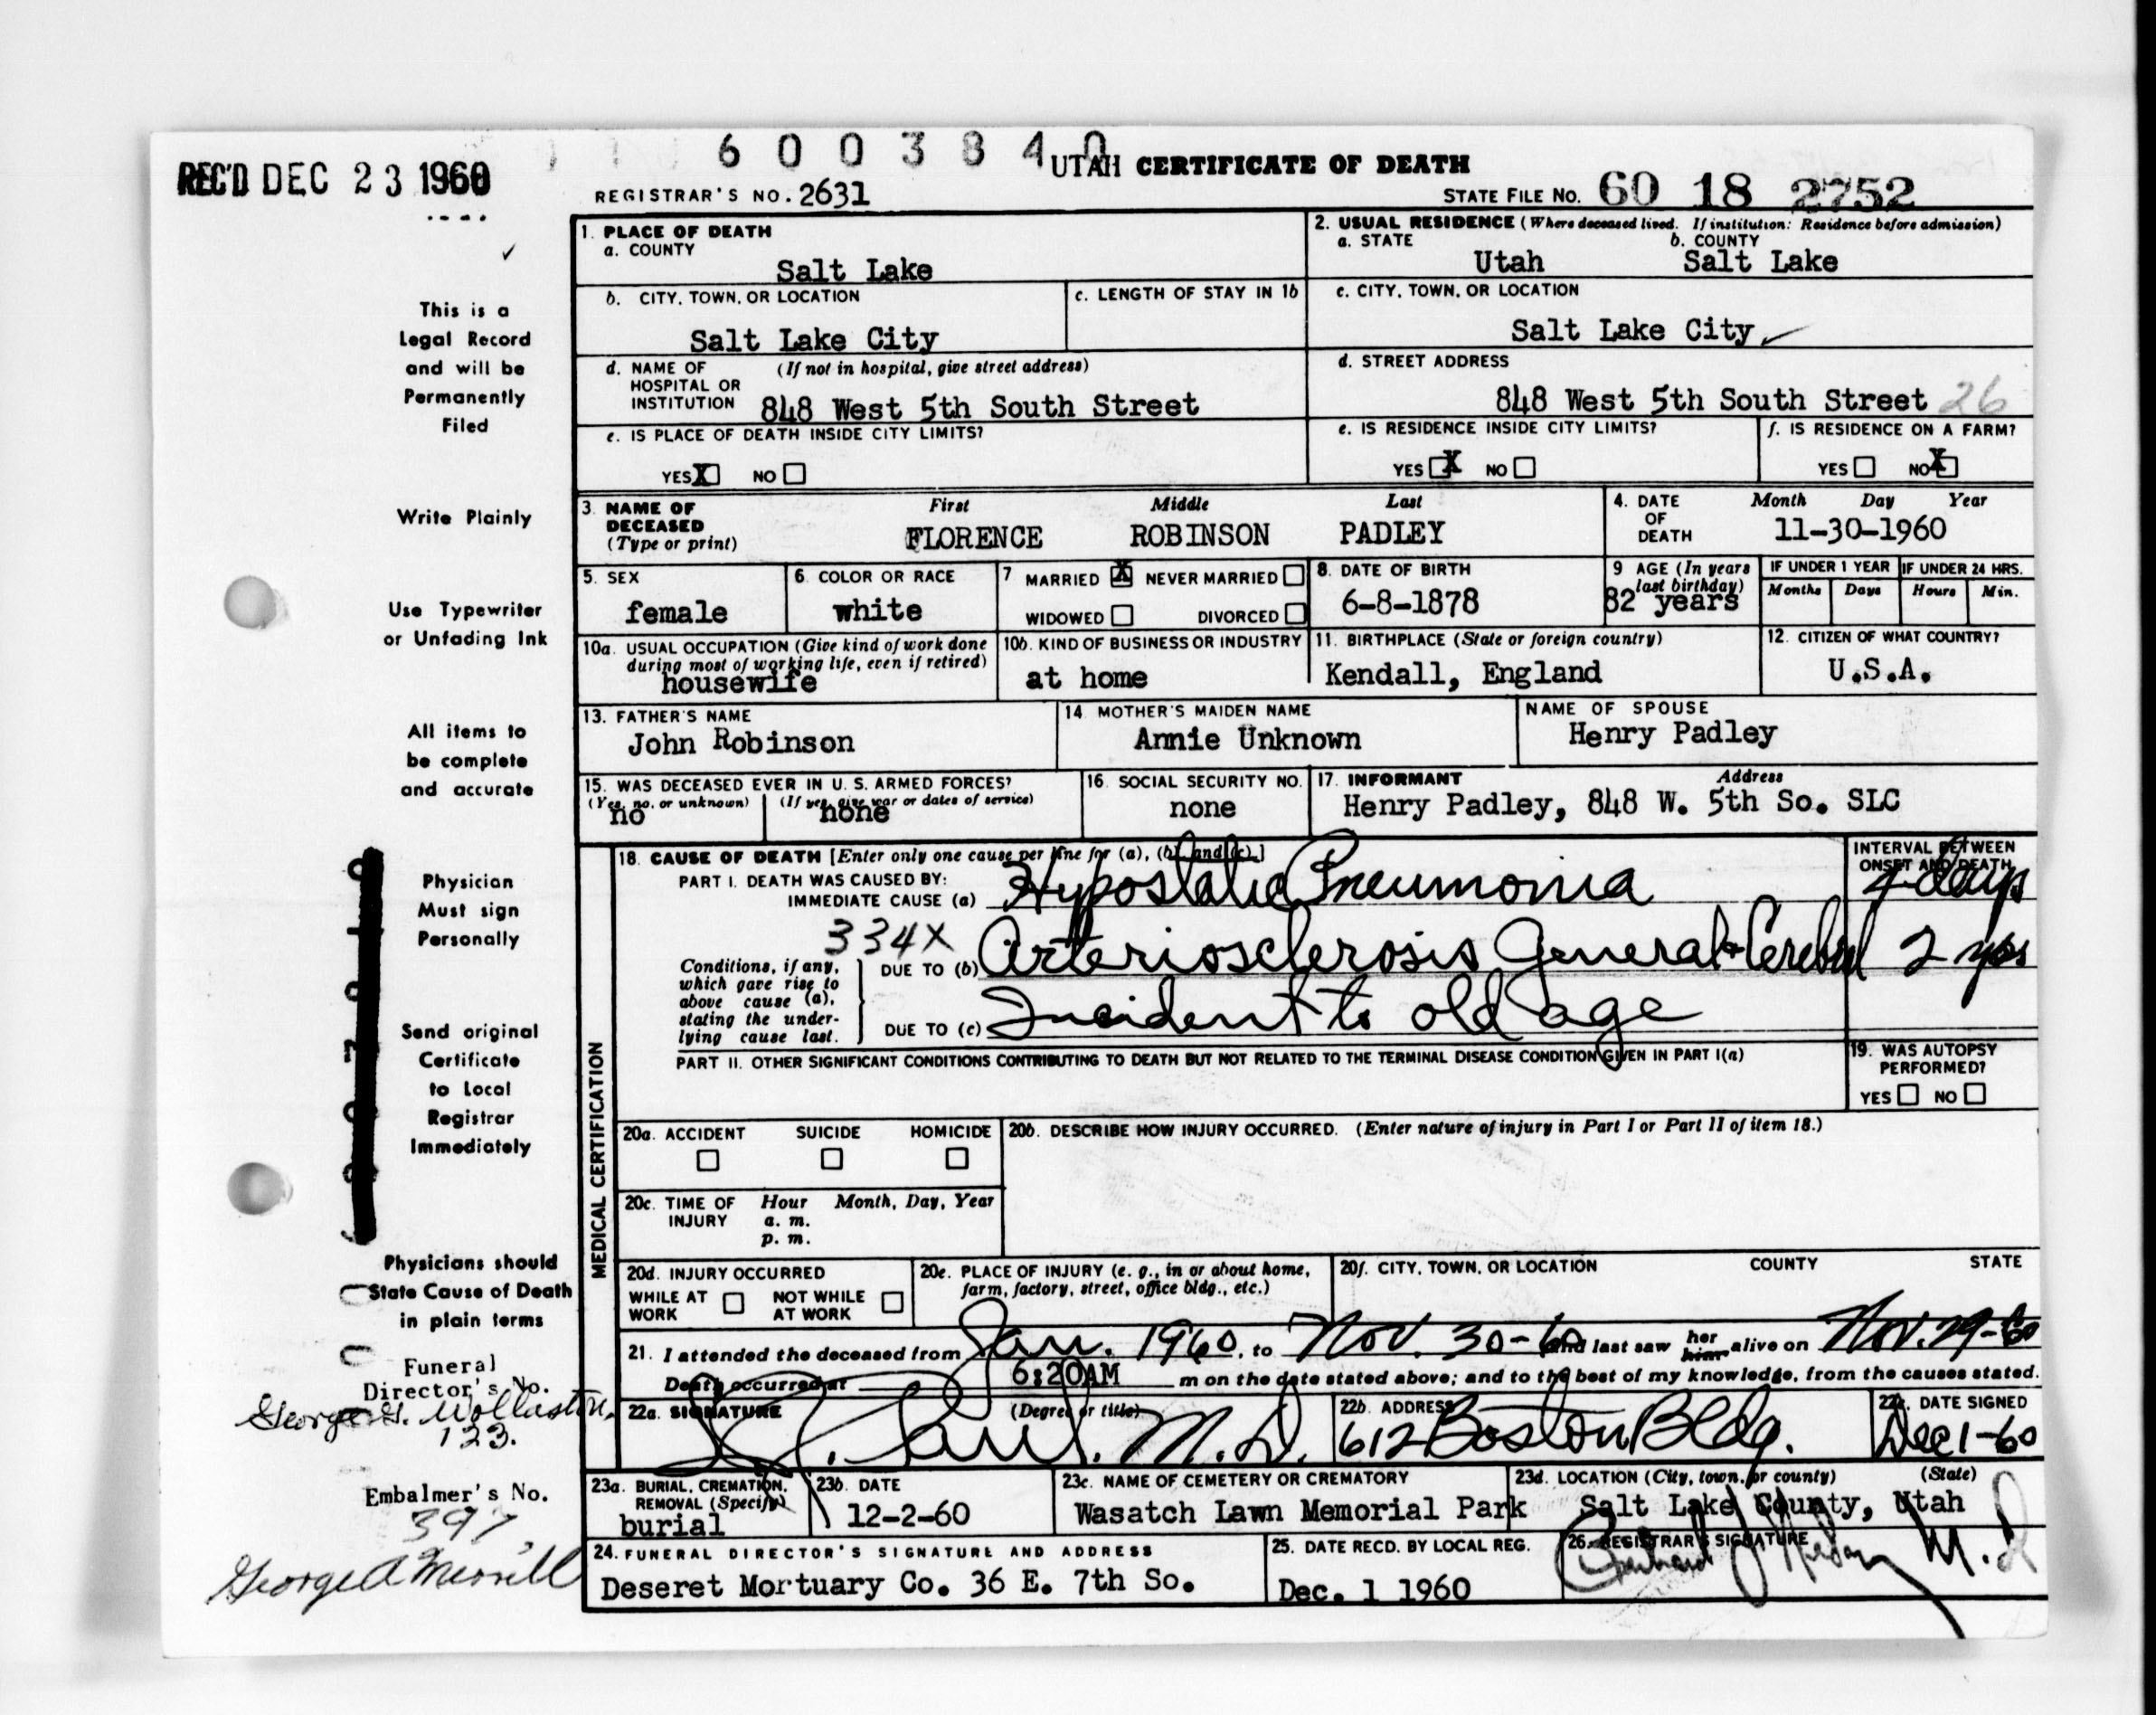 REC'D DEC 23 1960
6003840
UTAH CERTIFICATE OF DEATH
REGISTRAR'S NO. 2631
STATE FILE NO. 60 18 2752
This is a
Legal Record
and will be
Permanently
Filed
Write Plainly
Use Typewriter
or Unfading Ink
All items to
be complete
and accurate
Physician
Must sign
Personally
Send original
Certificate
to Local
Registrar
Immediately
Physicians should
State Cause of Death
in plain terms
Funeral
Director's No.
George G. Wollaston
123.
Embalmer's No.
397
George A Merrill
1. PLACE OF DEATH
a. COUNTY
Salt Lake
2. USUAL RESIDENCE (Where deceased lived. If institution: Residence before admission)
a. STATE b. COUNTY
Utah Salt Lake
b. CITY, TOWN, OR LOCATION
Salt Lake City
c. LENGTH OF STAY IN 1b
c. CITY, TOWN, OR LOCATION
Salt Lake City
d. NAME OF (If not in hospital, give street address)
HOSPITAL OR
INSTITUTION 848 West 5th South Street
d. STREET ADDRESS
848 West 5th South Street 26
e. IS PLACE OF DEATH INSIDE CITY LIMITS?
YES X NO
e. IS RESIDENCE INSIDE CITY LIMITS?
YES X NO
f. IS RESIDENCE ON A FARM?
YES NO X
3. NAME OF DECEASED (Type or print)
First Middle Last
FLORENCE ROBINSON PADLEY
4. DATE OF DEATH
Month Day Year
11-30-1960
5. SEX
female
6. COLOR OR RACE
white
7 MARRIED X NEVER MARRIED
WIDOWED DIVORCED
8. DATE OF BIRTH
6-8-1878
9 AGE (In years
last birthday)
82 years
IF UNDER 1 YEAR IF UNDER 24 HRS.
Months Days Hours Min.
10a. USUAL OCCUPATION (Give kind of work done
during most of working life, even if retired)
housewife
10b. KIND OF BUSINESS OR INDUSTRY
at home
11. BIRTHPLACE (State or foreign country)
Kendall, England
12. CITIZEN OF WHAT COUNTRY?
U.S.A.
13. FATHER'S NAME
John Robinson
14 MOTHER'S MAIDEN NAME
Annie Unknown
NAME OF SPOUSE
Henry Padley
15. WAS DECEASED EVER IN U. S. ARMED FORCES?
(Yes, no, or unknown) (If yes, give war or dates of service)
no none
16. SOCIAL SECURITY NO.
none
17. INFORMANT Address
Henry Padley, 848 W. 5th So. SLC
MEDICAL CERTIFICATION
18. CAUSE OF DEATH [Enter only one cause per line for (a), (b), and (c).]
PART I. DEATH WAS CAUSED BY:
IMMEDIATE CAUSE (a) Hypostatic Pneumonia
INTERVAL BETWEEN
ONSET AND DEATH
4 days
334X
Conditions, if any,
which gave rise to
above cause (a),
stating the under-
lying cause last.
DUE TO (b) Arteriosclerosis General & Cerebral 2 yrs
DUE TO (c) Incident to old age
PART II. OTHER SIGNIFICANT CONDITIONS CONTRIBUTING TO DEATH BUT NOT RELATED TO THE TERMINAL DISEASE CONDITION GIVEN IN PART I(a)
19. WAS AUTOPSY
PERFORMED?
YES NO
20a. ACCIDENT SUICIDE HOMICIDE
20b. DESCRIBE HOW INJURY OCCURRED. (Enter nature of injury in Part I or Part II of item 18.)
20c. TIME OF INJURY
Hour Month, Day, Year
a. m.
p. m.
20d. INJURY OCCURRED
WHILE AT WORK NOT WHILE AT WORK
20e. PLACE OF INJURY (e. g., in or about home,
farm, factory, street, office bldg., etc.)
20f. CITY, TOWN, OR LOCATION COUNTY STATE
21. I attended the deceased from Jan. 1960, to Nov. 30-60 and last saw her him alive on Nov. 29-60
Death occurred at 6:20AM m on the date stated above; and to the best of my knowledge, from the causes stated.
22a. SIGNATURE (Degree or title)
M.D.
22b. ADDRESS
612 Boston Bldg.
22c. DATE SIGNED
Dec 1-60
23a. BURIAL, CREMATION,
REMOVAL (Specify)
burial
23b. DATE
12-2-60
23c. NAME OF CEMETERY OR CREMATORY
Wasatch Lawn Memorial Park
23d. LOCATION (City, town, or county) (State)
Salt Lake County, Utah
24. FUNERAL DIRECTOR'S SIGNATURE AND ADDRESS
Deseret Mortuary Co. 36 E. 7th So.
25. DATE RECD. BY LOCAL REG.
Dec. 1 1960
26. REGISTRAR'S SIGNATURE
M.D